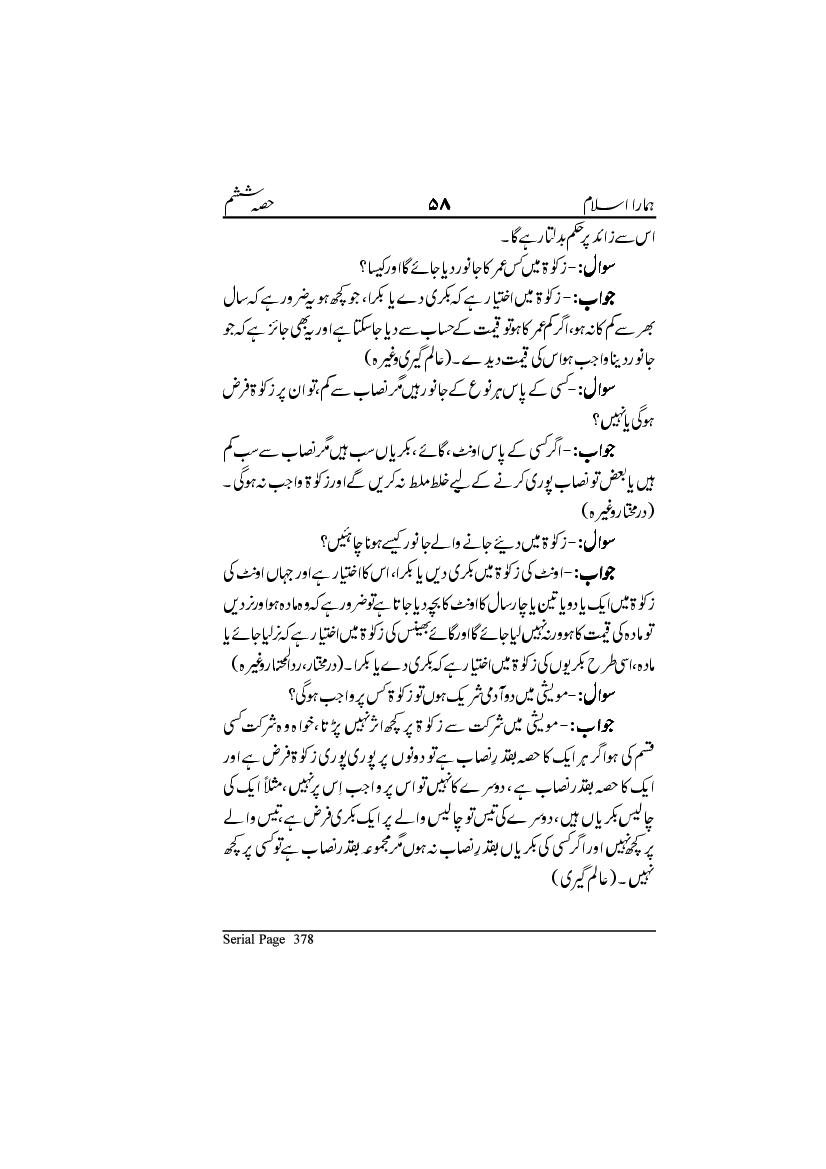 ہمارا اسلام ۵۸ حصہ ششم
اس سے زائد پر حکم بدلتا رہے گا۔
سوال:- زکوٰۃ میں کس عمر کا جانور دیا جائے گا اور کیسا؟
جواب:- زکوٰۃ میں اختیار ہے کہ بکری دے یا بکرا، جو کچھ ہو یہ ضرور ہے کہ سال
بھر سے کم کا نہ ہو، اگر کم عمر کا ہو تو قیمت کے حساب سے دیا جاسکتا ہے اور یہ بھی جائز ہے کہ جو
جانور دینا واجب ہو اس کی قیمت دیدے۔ (عالم گیری وغیرہ)
سوال:- کسی کے پاس ہر نوع کے جانور ہیں مگر نصاب سے کم، تو ان پر زکوٰۃ فرض
ہوگی یا نہیں؟
جواب:- اگر کسی کے پاس اونٹ، گائے، بکریاں سب ہیں مگر نصاب سے سب کم
ہیں یا بعض تو نصاب پوری کرنے کے لیے خلط ملط نہ کریں گے اور زکوٰۃ واجب نہ ہوگی۔
(درمختار وغیرہ)
سوال:- زکوٰۃ میں دیئے جانے والے جانور کیسے ہونا چاہئیں؟
جواب:- اونٹ کی زکوٰۃ میں بکری دیں یا بکرا، اس کا اختیار ہے اور جہاں اونٹ کی
زکوٰۃ میں ایک یا دو یا تین یا چار سال کا اونٹ کا بچہ دیا جاتا ہے تو ضرور ہے کہ وہ مادہ ہو اور نر دیں
تو مادہ کی قیمت کا ہو ورنہ نہیں لیا جائے گا اور گائے بھینس کی زکوٰۃ میں اختیار ہے کہ نر لیا جائے یا
مادہ، اسی طرح بکریوں کی زکوٰۃ میں اختیار ہے کہ بکری دے یا بکرا۔ (درمختار، ردالمحتار وغیرہ)
سوال:- مویشی میں دو آدمی شریک ہوں تو زکوٰۃ کس پر واجب ہوگی؟
جواب:- مویشی میں شرکت سے زکوٰۃ پر کچھ اثر نہیں پڑتا، خواہ وہ شرکت کسی
قسم کی ہو اگر ہر ایک کا حصہ بقدرِ نصاب ہے تو دونوں پر پوری پوری زکوٰۃ فرض ہے اور
ایک کا حصہ بقدر نصاب ہے، دوسرے کا نہیں تو اس پر واجب اِس پر نہیں، مثلاً ایک کی
چالیس بکریاں ہیں، دوسرے کی تیس تو چالیس والے پر ایک بکری فرض ہے، تیس والے
پر کچھ نہیں اور اگر کسی کی بکریاں بقدرِ نصاب نہ ہوں مگر مجموعہ بقدر نصاب ہے تو کسی پر کچھ
نہیں۔ (عالم گیری)
Serial Page 378